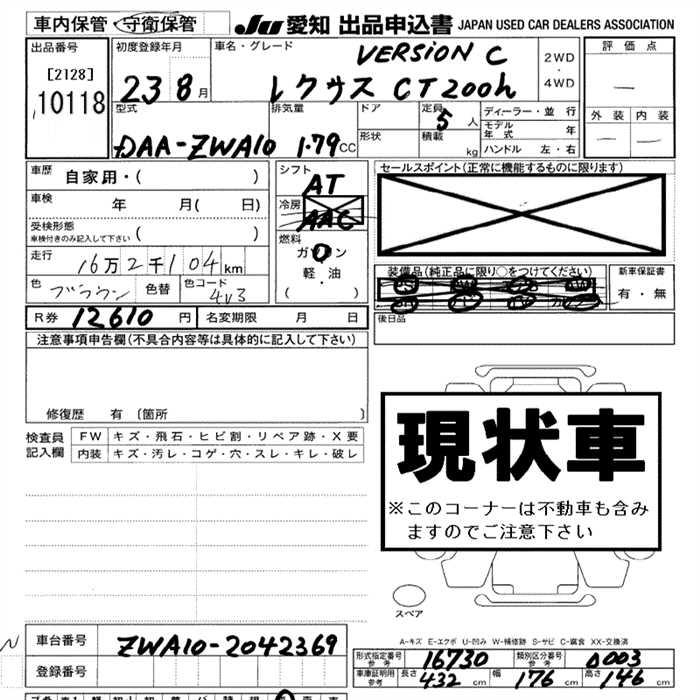 車内保管・守衛保管
JU 愛知 出品申込書 JAPAN USED CAR DEALERS ASSOCIATION
出品番号
[2128]
10118
初度登録年月
23 8月
車名・グレード
VERSION C
レクサス CT200h
2WD
・
4WD
評価点
外装 内装
型式
DAA-ZWA10
排気量
1.79CC
ドア
形状
定員
5人
積載
kg
ディーラー・並行
モデル年式 年
ハンドル 左・右
車歴 自家用・( )
車検 年 月( 日)
受検形態
車検付きのみ記入して下さい ( )
走行 16万2千104km
色 ブラウン 色替 色コード 4V3
シフト
AT
冷房
AAC
燃料
ガソリン
軽・油
( )
セールスポイント(正常に機能するものに限ります)
装備品(純正品に限り○をつけてください)
新車保証書
有・無
後日品
R券 12610円 名変期限 月 日
注意事項申告欄(不具合内容等は具体的に記入して下さい)
修復歴 有〔箇所 〕
検査員記入欄
FW キズ・飛石・ヒビ割・リペア跡・X要
内装 キズ・汚レ・コゲ・穴・スレ・キレ・破レ
現状車
※このコーナーは不動車も含み
ますのでご注意下さい
スペア
A-キズ E-エクボ U-凹み W-補修跡 S-サビ C-腐食 XX-交換済
車台番号 ZWA10-2042369
登録番号
型式指定番号 参考 16730 類別区分番号 参考 0003
車庫証明用 参考 長さ 432cm 幅 176cm 高さ 146cm